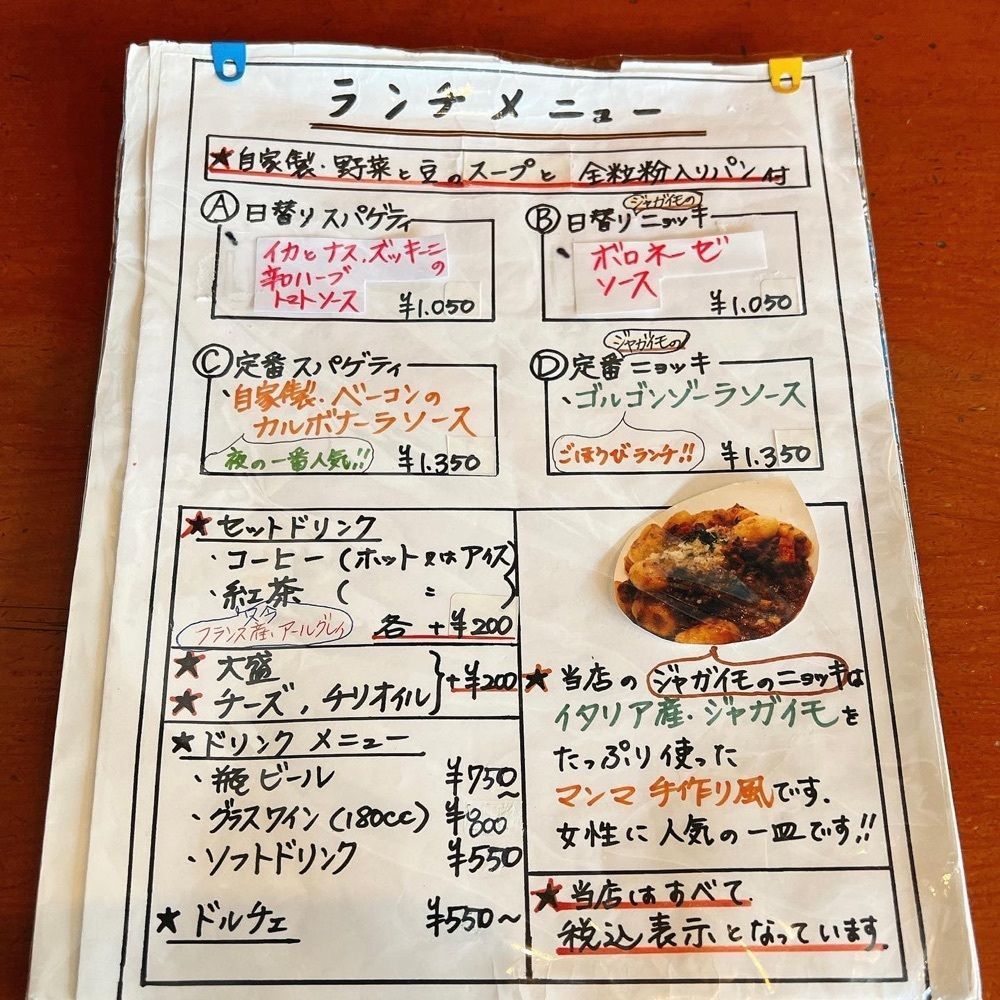 ランチメニュー
★自家製・野菜と豆のスープと 全粒粉入りパン付
Ⓐ日替りスパゲティ
イカとナス、ズッキーニの
辛口ハーブ
トマトソース
¥1.050
Ⓑ日替りジャガイモのニョッキ
ボロネーゼ
ソース
¥1.050
Ⓒ定番スパゲティ
・自家製・ベーコンの
カルボナーラソース
夜の一番人気!!
¥1.350
Ⓓ定番ジャガイモのニョッキ
・ゴルゴンゾーラソース
ごほうびランチ!!
¥1.350
★セットドリンク
・コーヒー(ホット又はアイス)
・紅茶 ( 〃 )
フランス産・アールグレイ
各 +¥200
★大盛
★チーズ、チリオイル
+¥200
★ドリンクメニュー
・瓶ビール ¥750〜
・グラスワイン(180cc) ¥800
・ソフトドリンク ¥550
★ドルチェ ¥550〜
★当店のジャガイモのニョッキは
イタリア産・ジャガイモを
たっぷり使った
マンマ手作り風です.
女性に人気の一皿です!!
★当店はすべて
税込表示となっています.